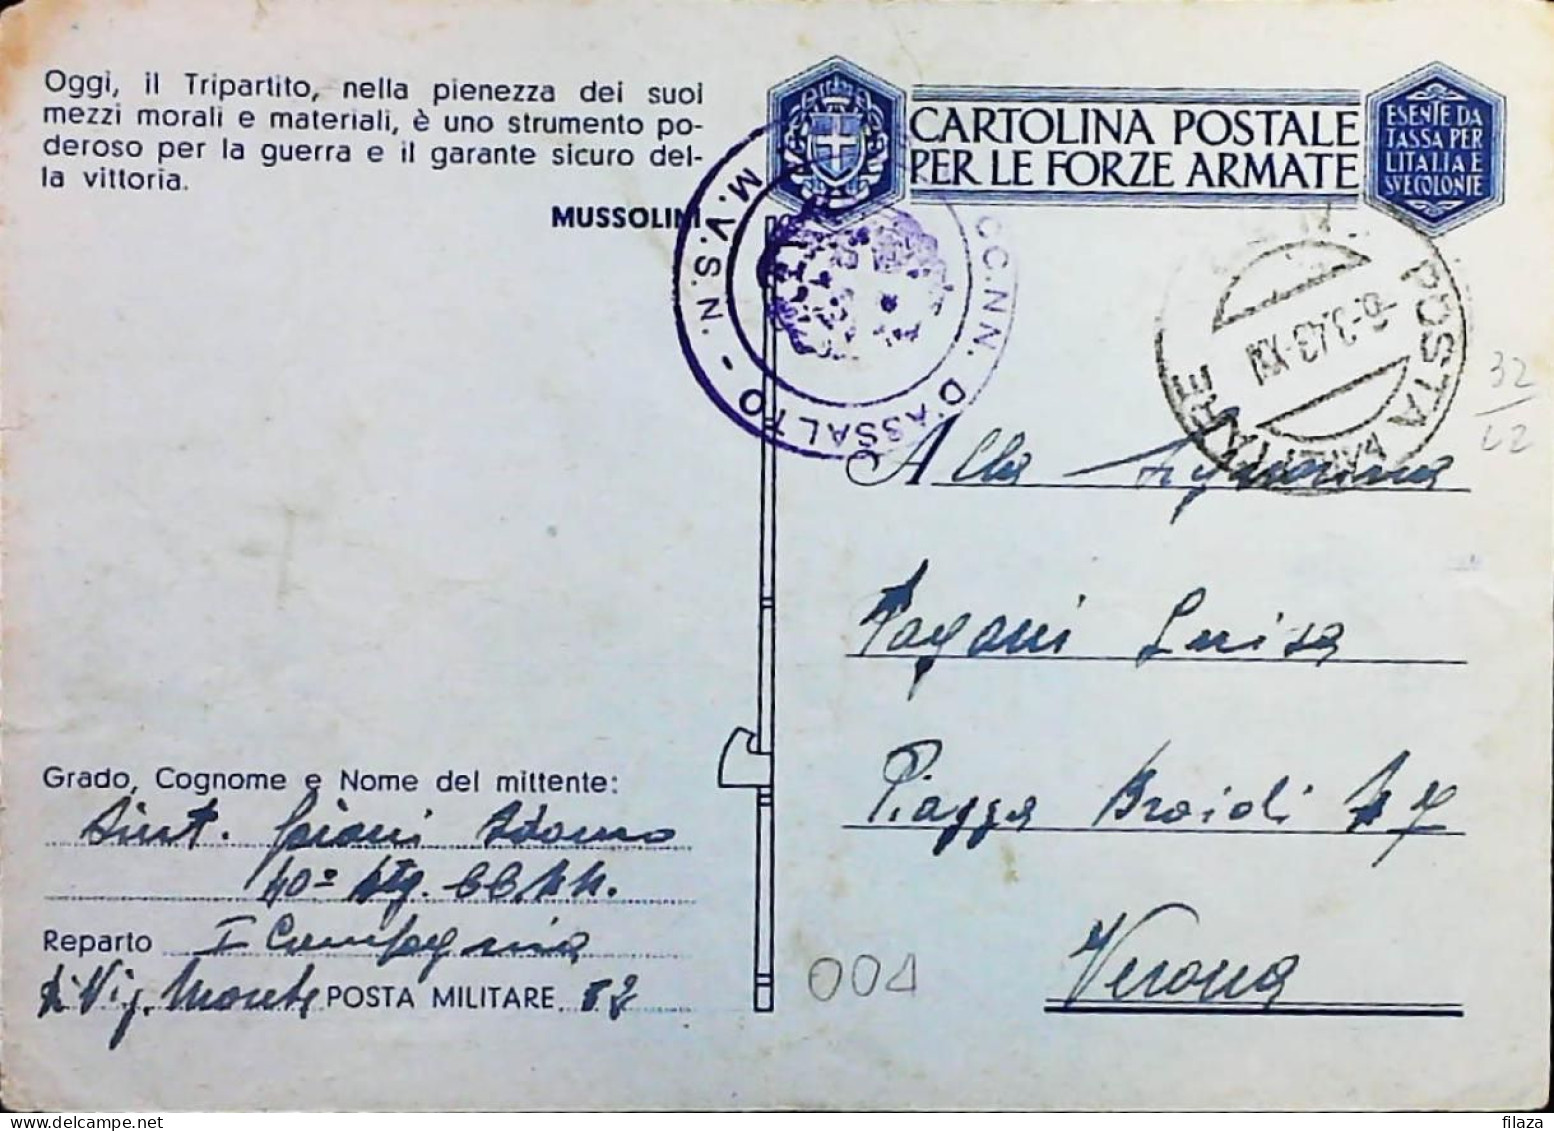 Oggi, il Tripartito, nella pienezza dei suoi
mezzi morali e materiali, è uno strumento po-
deroso per la guerra e il garante sicuro del-
la vittoria.
MUSSOLINI
CARTOLINA POSTALE
PER LE FORZE ARMATE
ESENTE DA
TASSA PER
L'ITALIA E
SVE COLONIE
M.V.S.N. CC.NN. D'ASSALTO -
POSTA MILITARE
-3.43-XXI
32
Alla Signorina
Pagani Luisa
Piazza Braidi N 7
Verona
Grado, Cognome e Nome del mittente:
Adamo
40º Btg. CC.NN.
Reparto I Compagnia
POSTA MILITARE
004
filaza